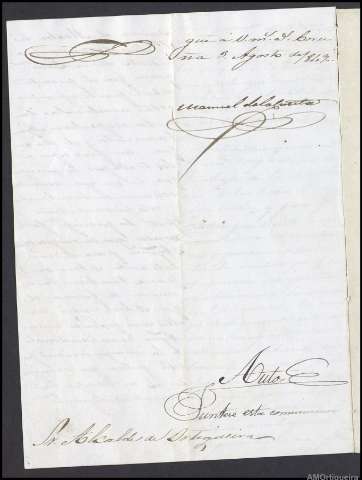 que á V. m.s a.s Coru
ña 3 Agosto de 1847.
Manuel de la Puente
Auto
Juntese esta comunicacion
Sr Alcalde de Ortigueira
AMOrtigueira